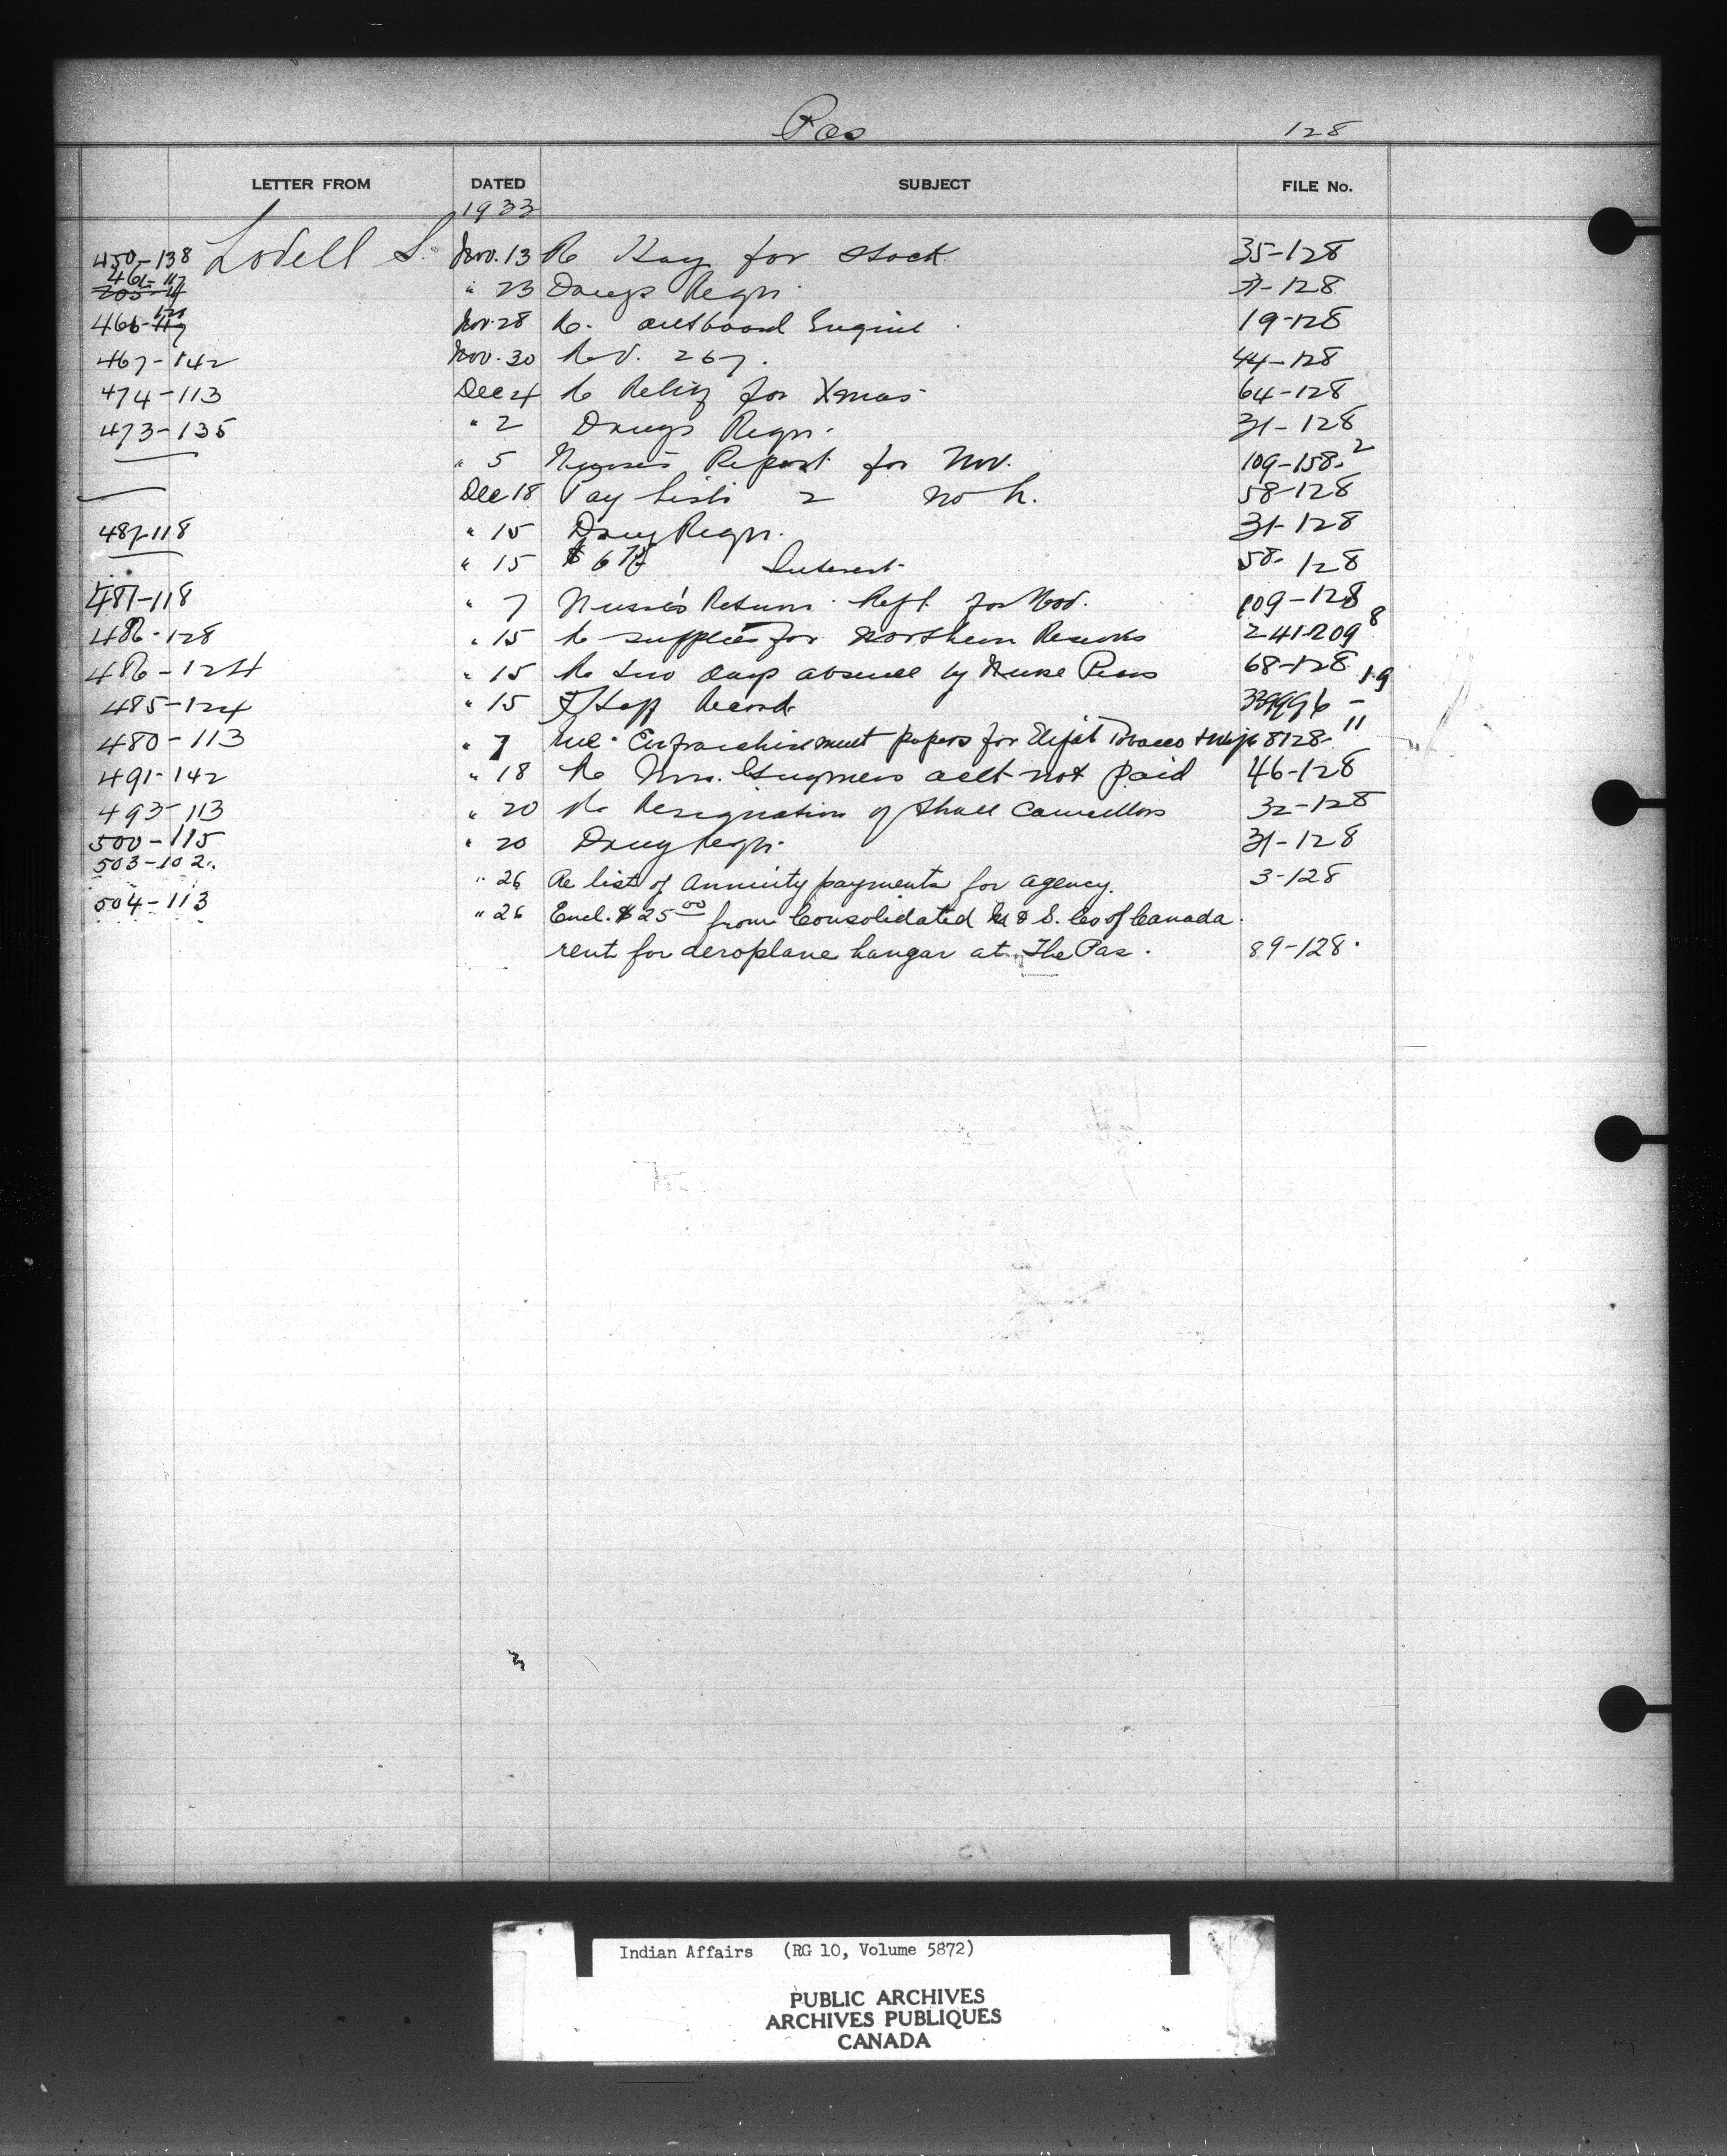 Pas 128
LETTER FROM DATED SUBJECT FILE No.
1933
450-138 Lovell S. Nov. 13 Re Hay for stock 35-128
461-117 " 23 Drugs Reqn. 31-128
466-120 Nov. 28 Re. outboard Engine. 19-128
467-142 Nov. 30 Re V. 267. 44-128
474-113 Dec 4 Re Relief for Xmas 64-128
473-135 " 2 Drugs Reqn. 31-128
" 5 Report for Nov. 109-158-2
Dec 18 Pay Lists 2 No L. 58-128
487-118 " 15 Drug Reqn. 31-128
" 15 $6 Interest 58-128
481-118 " 7 Nurse's Return Rept. for Nov. 109-128
486-128 " 15 Re supplies for Northern Reserves 241-209 8
486-124 " 15 Re two days absence by Nurse 68-128 19
485-124 " 15 Staff Record -
480-113 " 7 Enfranchisement papers for Elijah Tobacco & wife 8128-11
491-142 " 18 Re Mrs. acct not paid 46-128
493-113 " 20 Re Resignation of Councillors 32-128
500-115 " 20 Drug Reqn. 31-128
503-102. " 26 Re list of Annuity payments for agency. 3-128
504-113 " 26 Encl. $25.00 from Consolidated M & S. Co of Canada.
rent for aeroplane hangar at The Pas. 89-128.
Indian Affairs (RG 10, Volume 5872)
PUBLIC ARCHIVES
ARCHIVES PUBLIQUES
CANADA